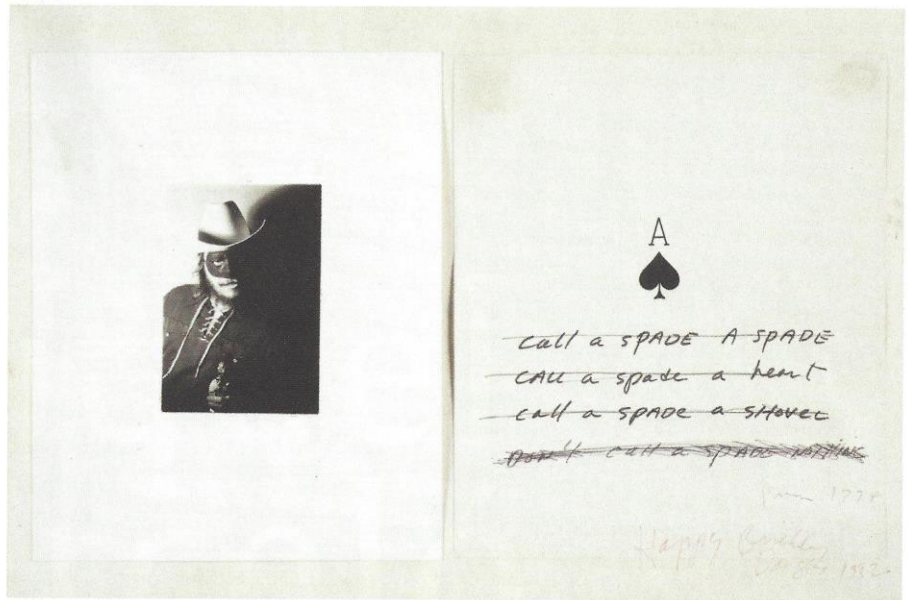 A
call a SPADE A SPADE
CALL a spade a heart
call a SPADE a SHOVEL
DON'T call a SPADE NOTHING
from 1974
Happy
1992